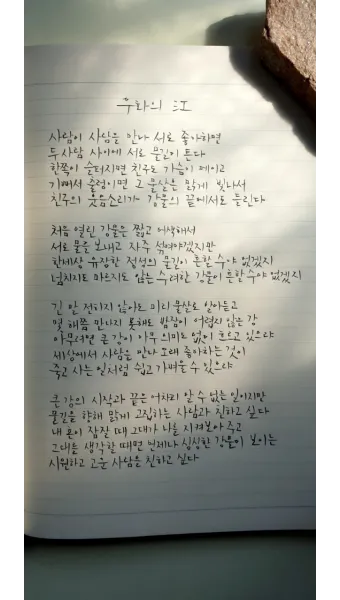 우화의 江
사람이 사람을 만나 서로 좋아하면
두 사람 사이에 서로 물길이 튼다
한쪽이 슬퍼지면 친구도 가슴이 메이고
기뻐서 출렁이면 그 물살은 밝게 빛나서
친구의 웃음소리가 강물의 끝에서도 들린다
처음 열린 강물은 짧고 어색해서
서로 물을 보내고 자주 섞여야겠지만
한세상 유장한 정성의 물길이 흔할 수야 없겠지
넘치지도 마르지도 않는 수려한 강물이 흔할 수야 없겠지
긴 말 전하지 않아도 미리 물살로 알아듣고
몇 해쯤 만나지 못해도 밤잠이 어렵지 않은 강
아무려면 큰 강이 아무 의미도 없이 흐르고 있으랴
세상에서 사람을 만나 오래 좋아하는 것이
죽고 사는 일처럼 쉽고 가벼울 수 있으랴
큰 강의 시작과 끝은 어차피 알 수 없는 일이지만
물길을 항해 맑게 고집하는 사람과 친하고 싶다
내 혼이 잠잘 때 그대가 나를 지켜보아 주고
그대를 생각할 때면 언제나 싱싱한 강물이 보이는
시원하고 고운 사람을 친하고 싶다